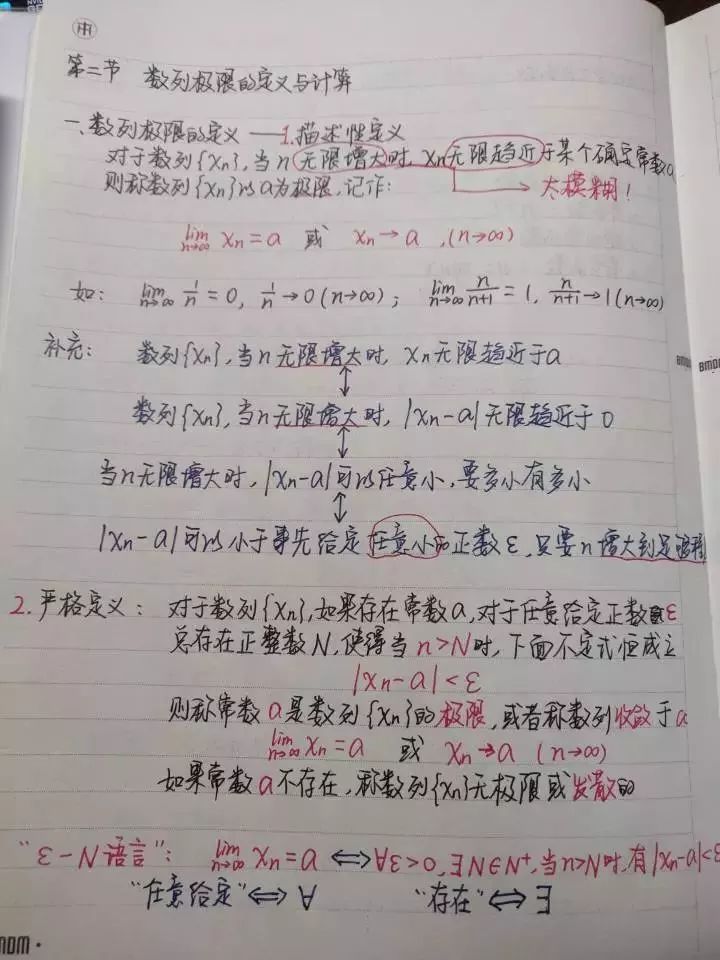 第二节 数列极限的定义与计算
一、数列极限的定义 —— 1.描述性定义
对于数列{xn},当n无限增大时,xn无限趋近于某个确定常数a
则称数列{xn}以a为极限,记作:
太模糊!
lim n→∞ xn = a 或 xn→a ,(n→∞)
如: lim n→∞ 1/n = 0, 1/n → 0 (n→∞) ; lim n→∞ n/n+1 = 1, n/n+1 → 1 (n→∞)
补充: 数列{xn},当n无限增大时, xn无限趋近于a
数列{xn},当n无限增大时, |xn-a|无限趋近于0
当n无限增大时, |xn-a|可以任意小,要多小有多小
|xn-a|可以小于事先给定任意小的正数ε,只要n增大到足够
2.严格定义: 对于数列{xn},如果存在常数a,对于任意给定正数ε
总存在正整数N,使得当n>N时,下面不定式恒成立
|xn-a|<ε
则称常数a是数列{xn}的极限,或者称数列收敛于a
lim n→∞ xn = a 或 xn→a (n→∞)
如果常数a不存在,称数列{xn}无极限或发散的
"ε-N语言": lim n→∞ xn = a ⟺ ∀ε>0,∃N∈N+,当n>N时,有|xn-a|<ε
"任意给定"⟺∀ "存在"⟺∃
BMDM